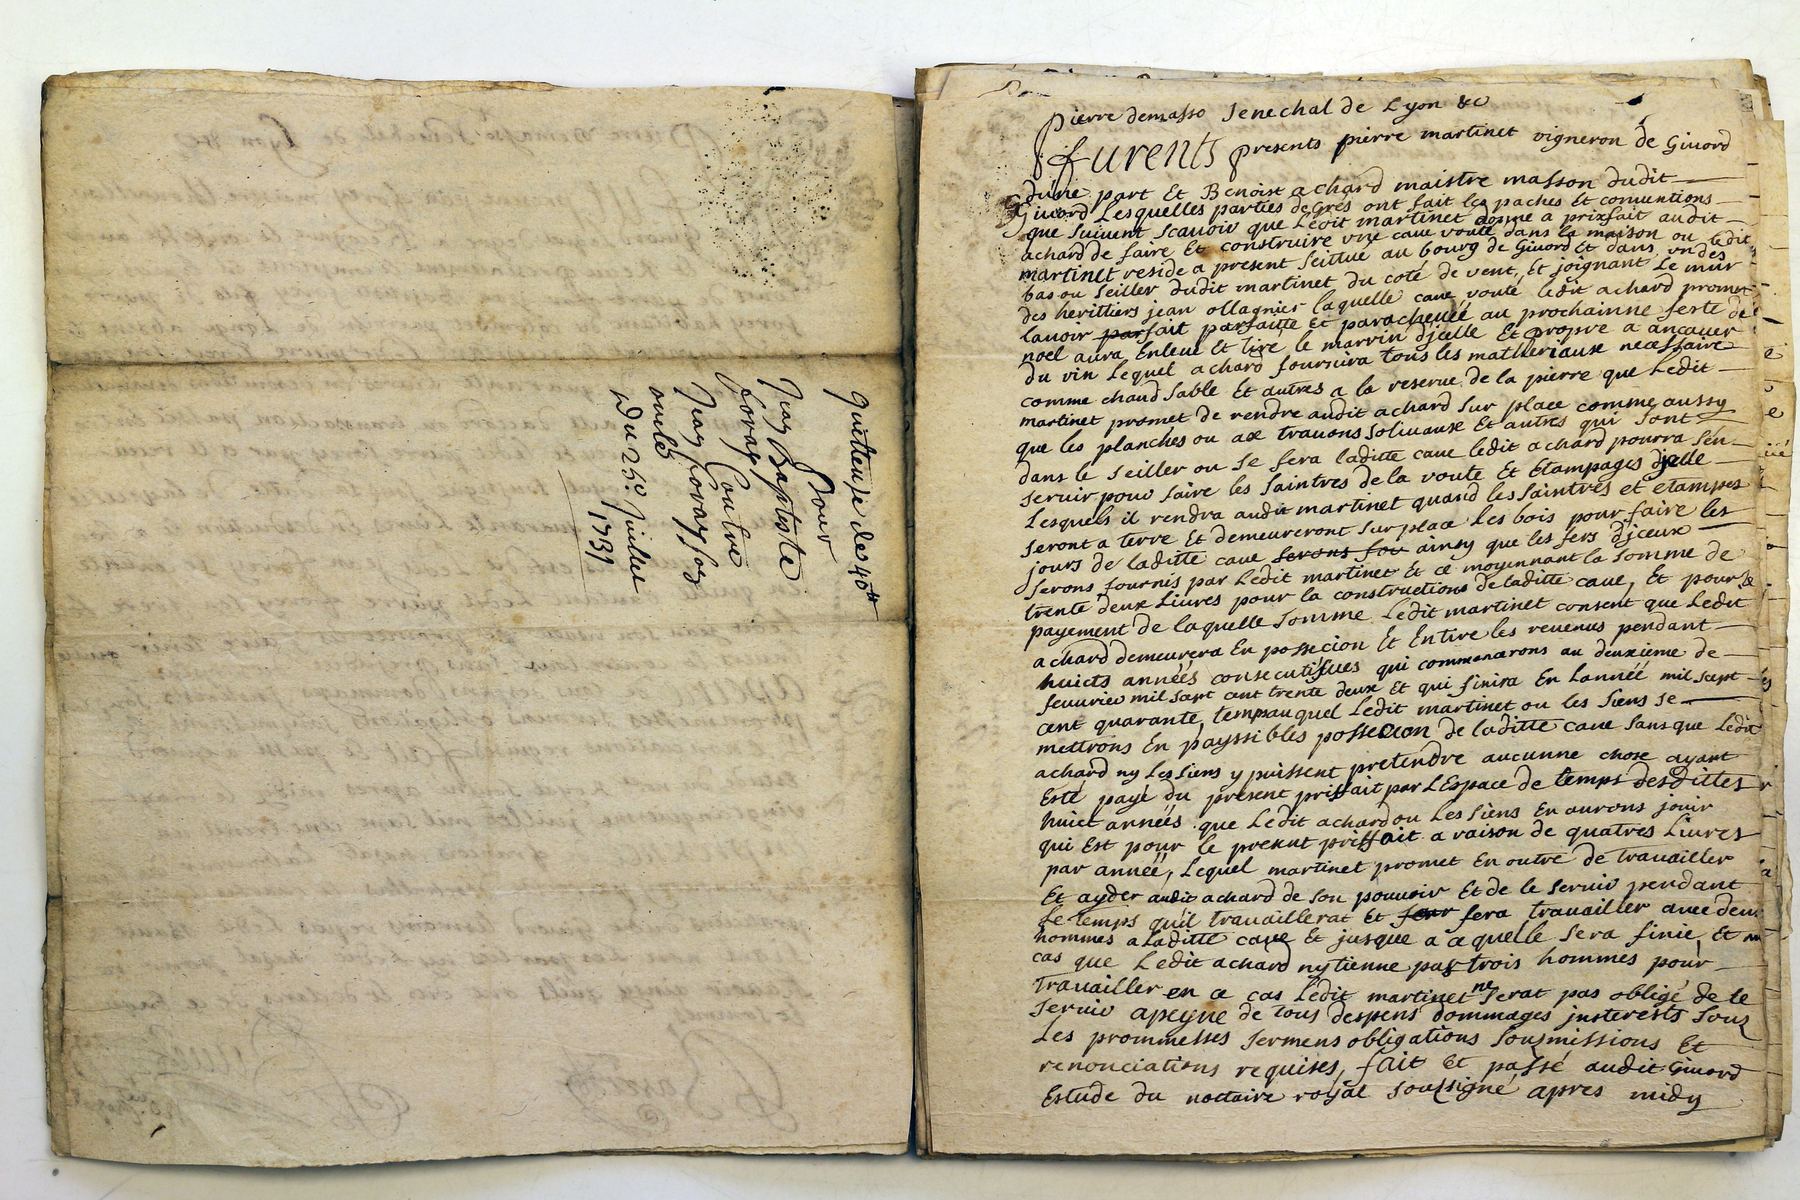 quittense de 40ᵗᵗ
Pour
Jean Baptiste
foray
Contre
Jean foray son
oncle
Du 25ᵉ. Juillet
1731
pierre demasso Senechal de Lyon &c
furents presents pierre martinet vigneron de Giuord
dune part Et Benoist achard maistre masson dudit
Giuord Lesquelles parties de Grés ont fait les paches Et conuentions
que suiuent scauoir que Ledit martinet donne a prixfait audit
achard de faire Et construire vne caue voute dans la maison ou ledit
martinet reside a present scittué au bourg de Giuord Et dans vn des
bas ou seiller dudit martinet du coté de vent, Et joignant Le mur
des herittiers jean ollagnier laquelle caue vouté ledit achard promet
lauoir parfait parfaitte Et paracheuéé au prochainne feste de
noel aura Enleué Et tiré le marrin djcelle Et propre a ancauer
du vin Lequel achard fournira tous les matheriaux necessaire
comme chaud sable Et autres a la reserue de la pierre que Ledit
martinet promet de rendre audit achard sur place comme aussy
que les planches ou ax trauons soliuaux Et autres qui sont
dans le seiller ou se fera laditte caue ledit achard pourra sen
seruir pour faire les saintres de la voute Et Etampages djcelle
Lesquels il rendra audit martinet quand les saintres et etampes
seront a terre Et demeureront sur place Les bois pour faire les
jours de laditte caue serons fou ainsy que les fers djceux
serons fournis par Ledit martinet Et ce moyennant la somme de
trente deux Liures pour la constructions de laditte caue, Et pour le
payement de laquelle somme Ledit martinet consent que Ledit
achard demeurera En possecion Et Entire les reuenus pendant
huicts annéés consecutifues qui commancerons au deuxieme de
feuurier mil sept cent trente deux Et qui finira En Lannéé mil sept
cent quarante, temps auquel Ledit martinet ou les siens se
mettrons En payssibles possecion de laditte caue sans que Ledit
achard ny Les siens y puissent pretendre aucunne chose ayant
Esté payé du present prisfait par LEspace de temps desdittes
huict annéés que Ledit achard ou Les siens En aurons jouir
qui Est pour le present prisfait a raison de quatres Liures
par annéé, Lequel martinet promet En outre de trauailler
Et ayder audit achard de son pouuoir Et de le seruir pendant
Le temps quil trauaillerat Et fera travailler auec deux
hommes a Laditte caue Et jusque a ce quelle sera finie, Et en
cas que Ledit achard ny tienne pas trois hommes pour
trauailler en ce cas Ledit martinet ne serat pas obligé de le
seruir apeyne de tous despens dommages justerests sous
Les prommesses sermens obligations sousmissions Et
renonciations requises, fait Et passé audit Giuord
Estude du nottaire royal soussigné apres midy